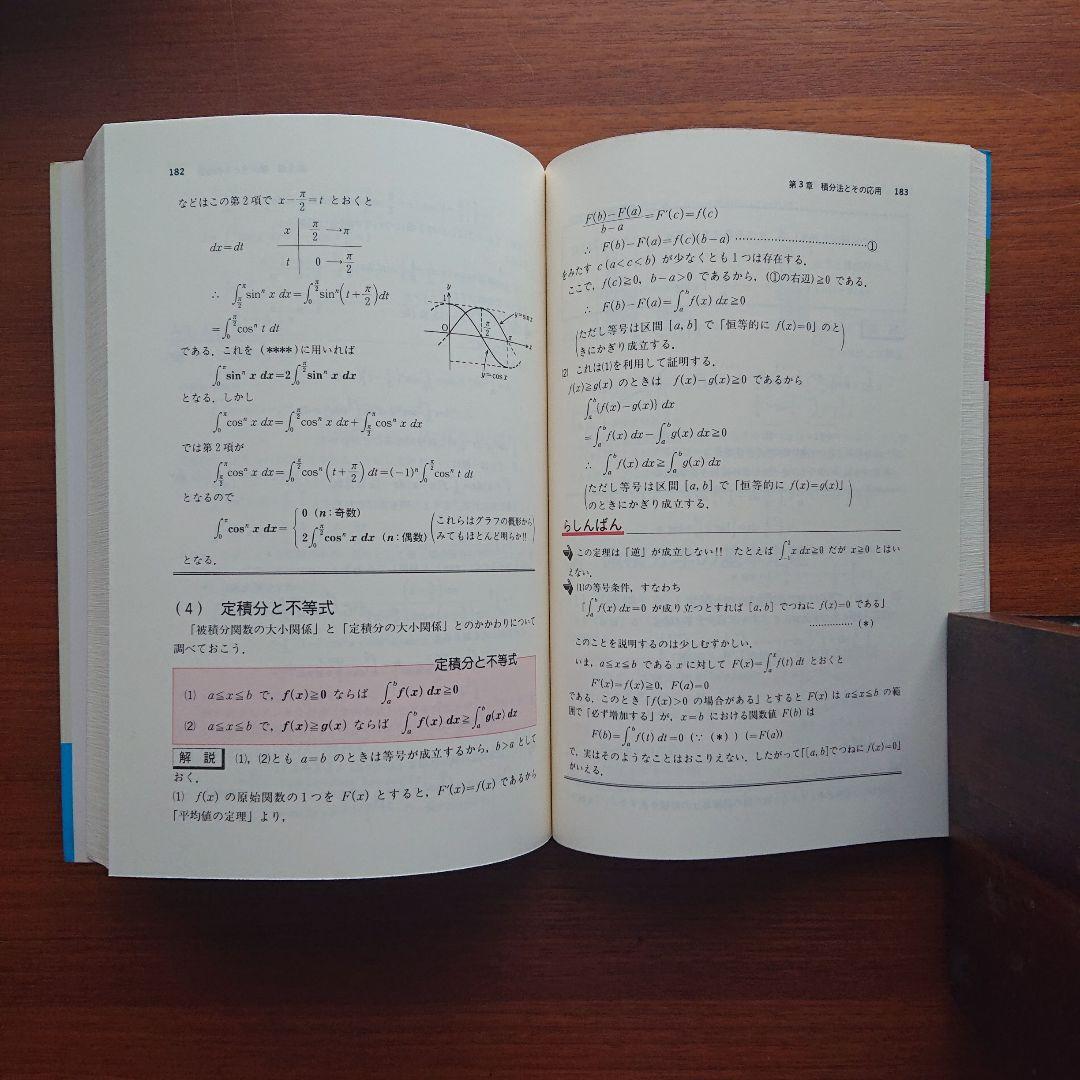 182
などはこの第2項で x−π/2=t とおくと
dx=dt
x π/2 → π
t 0 → π/2
∴ ∫_{π/2}^{π} sinⁿ x dx=∫_0^{π/2} sinⁿ(t+π/2)dt
=∫_0^{π/2} cosⁿ t dt
y
1
y=sin x
π/2
π
O
x
y=cos x
である．これを (****)に用いれば
∫_0^π sinⁿ x dx=2∫_0^{π/2} sinⁿ x dx
となる．しかし
∫_0^π cosⁿ x dx=∫_0^{π/2} cosⁿ x dx+∫_{π/2}^π cosⁿ x dx
では第2項が
∫_{π/2}^π cosⁿ x dx=∫_0^{π/2} cosⁿ(t+π/2) dt=(−1)ⁿ∫_0^{π/2} cosⁿ t dt
となるので
∫_0^π cosⁿ x dx={ 0 (n：奇数)
2∫_0^{π/2} cosⁿ x dx (n：偶数)
(これらはグラフの概形から
みてもほとんど明らか!!)
となる．
(4) 定積分と不等式
「被積分関数の大小関係」と「定積分の大小関係」とのかかわりについて
調べておこう．
定積分と不等式
⑴ a≦x≦b で，f(x)≧0 ならば ∫_a^b f(x) dx≧0
⑵ a≦x≦b で，f(x)≧g(x) ならば ∫_a^b f(x) dx≧∫_a^b g(x) dx
解説 ⑴，⑵とも a=b のときは等号が成立するから，b>a として
おく．
⑴ f(x) の原始関数の1つを F(x) とすると，F′(x)=f(x) であるから
「平均値の定理」より，
第3章 積分法とその応用 183
(F(b)−F(a))/(b−a)=F′(c)=f(c)
∴ F(b)−F(a)=f(c)(b−a) ……………………………………①
をみたす c (a<c<b) が少なくとも1つは存在する．
ここで，f(c)≧0，b−a>0 であるから，(①の右辺)≧0 である．
∴ F(b)−F(a)=∫_a^b f(x) dx≧0
(ただし等号は区間 [a, b] で「恒等的に f(x)=0」のと
きにかぎり成立する．)
⑵ これは⑴を利用して証明する．
f(x)≧g(x) のときは f(x)−g(x)≧0 であるから
∫_a^b {f(x)−g(x)} dx
=∫_a^b f(x) dx−∫_a^b g(x) dx≧0
∴ ∫_a^b f(x) dx≧∫_a^b g(x) dx
(ただし等号は区間 [a, b] で「恒等的に f(x)=g(x)」
のときにかぎり成立する．)
らしんばん
この定理は「逆」が成立しない!! たとえば ∫_{−1}^2 x dx≧0 だが x≧0 とはい
えない．
⑴の等号条件，すなわち
「∫_a^b f(x) dx=0 が成り立つとすれば [a, b] でつねに f(x)=0 である」
…………… (*)
このことを説明するのは少しむずかしい．
いま，a≦x≦b である x に対して F(x)=∫_a^x f(t) dt とおくと
F′(x)=f(x)≧0，F(a)=0
である．このとき「f(x)>0 の場合がある」とすると F(x) は a≦x≦b の範
囲で「必ず増加する」が，x=b における関数値 F(b) は
F(b)=∫_a^b f(t) dt=0 (∵ (*)) (=F(a))
で，実はそのようなことはおこりえない．したがって「[a, b]でつねに f(x)=0」
がいえる．